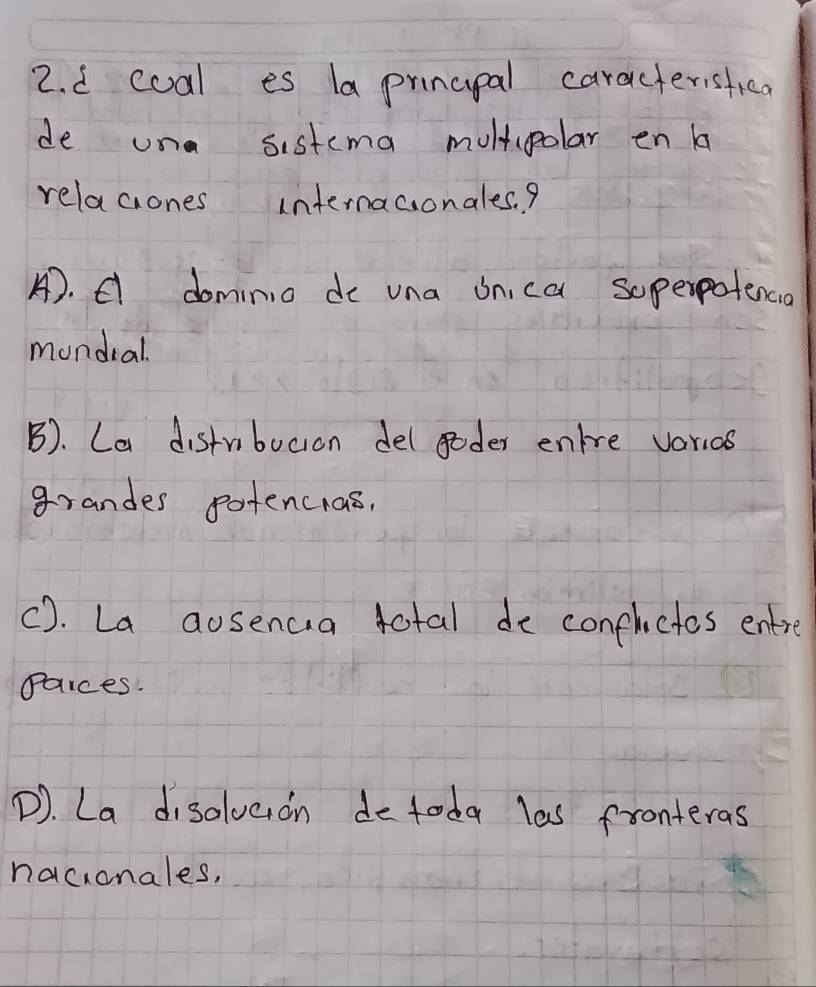 2. ¿ cual es la principal caracteristica
de una sistema multipolar en la
relaciones internacionales.?
A). El dominio de una única superpotencia
mundial.
B). La distribucion del poder entre varios
grandes potencias.
C). La ausencia total de conflictos entre
paices.
D). La disolución de toda las fronteras
nacionales.